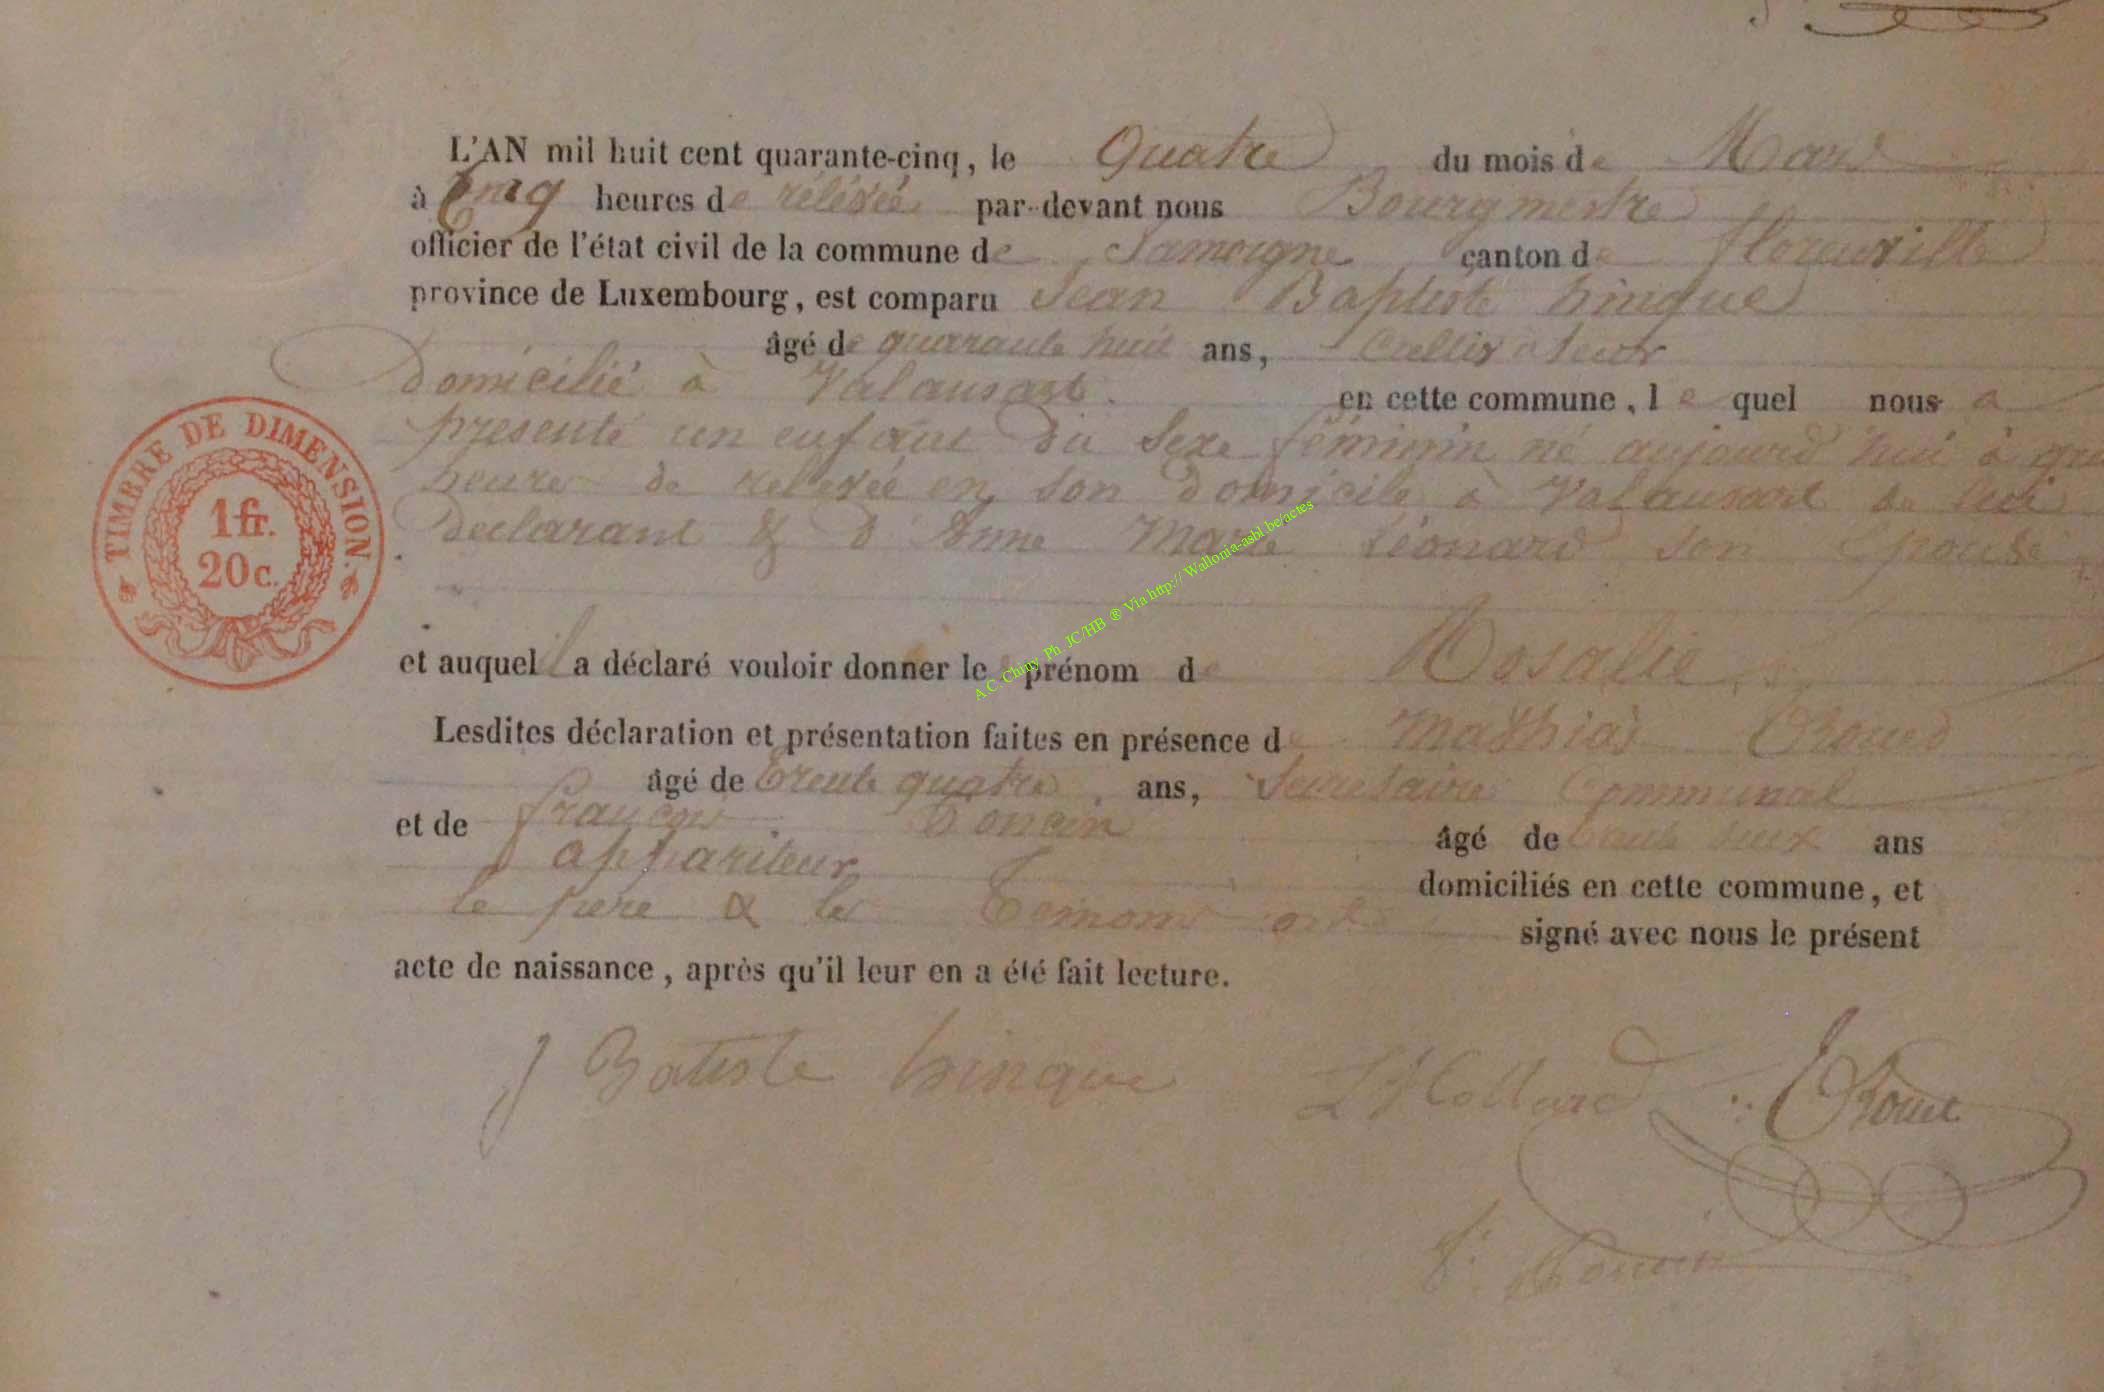 L'AN mil huit cent quarante-cinq, le Quatre du mois de Mars
à Cinq heures de rélévée par-devant nous Bourgmestre
officier de l'état civil de la commune de Jamoigne canton de florenville
province de Luxembourg, est comparu Jean Baptiste hinque
âgé de quarante huit ans, Cultivateur
Domicilié à Valansart. en cette commune, le quel nous a
présenté un enfant du Sexe féminin né aujourd'hui à
heure de relevée en son Domicile à Valansart de lui
declarant & d'Anne Marie Léonard son Epouse
et auquel il a déclaré vouloir donner le prénom de Rosalie
Lesdites déclaration et présentation faites en présence de Mathias
âgé de trente quatre ans, Secretaire Communal
et de françois Doncin âgé de ans
appariteur
domiciliés en cette commune, et
le pere & les Temoins ont signé avec nous le présent
acte de naissance, après qu'il leur en a été fait lecture.
J Batiste hinque
TIMBRE DE DIMENSION.
1 fr.
20 c.
A.C. Chiny Ph. JC/HB ® Via http:// Wallonia-asbl.be/actes